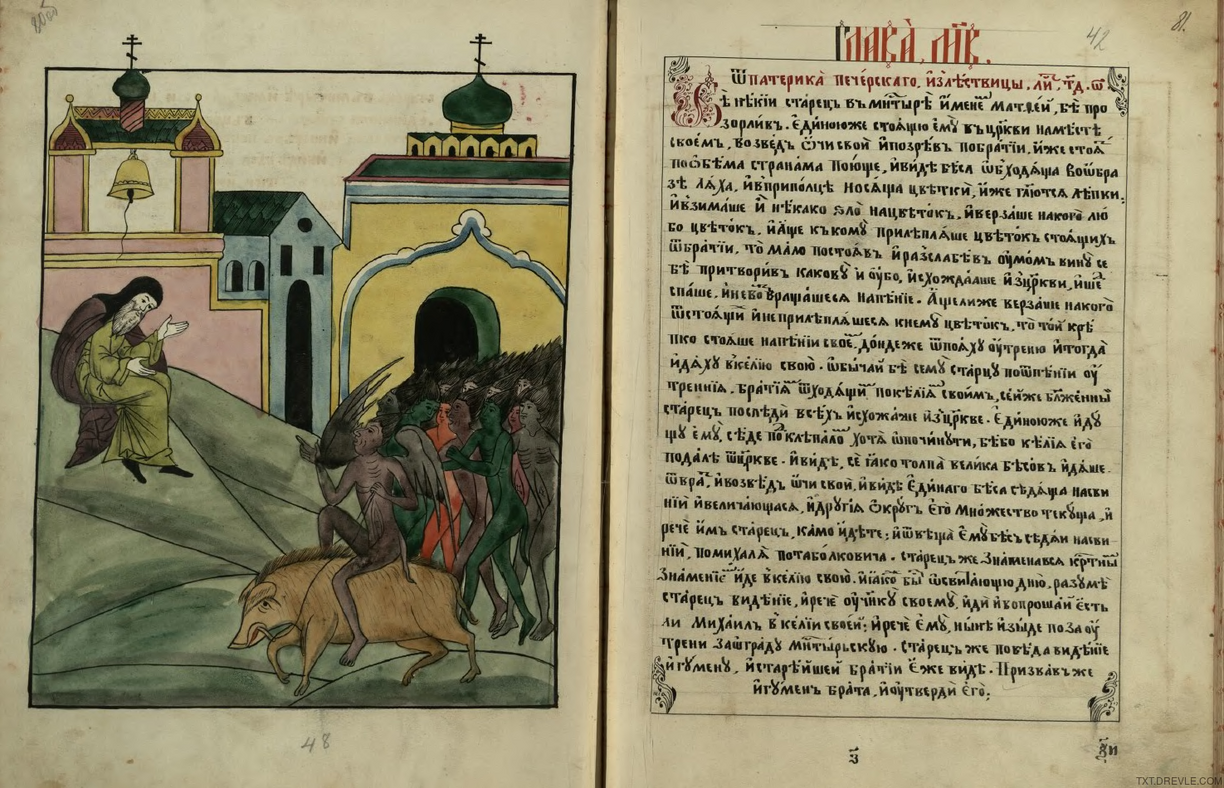 80об
48
Глава̀, м҃в.
42
81.
Ѿ патерика̀ пече́рскаго, и҆ лѣ́ствицы, ли́, т҃д. ѿ
Бѣ̀ нѣ́кїи ста́рецъ въ мн҃тырѣ̀ и҆́мене́ Матѳеи, бѣ̀ про
зорли́въ. Е҆ди́ною же стоѧ́щю є҆мꙋ̀ въ цр҃кви на мѣ́стѣ
свое́мъ, возве́дъ ѻ҆́чи свои̑ и҆ позрѣ́въ по бра́тїи, и҆́же стоѧ́
по ѻ҆бѣ́ма страна́ма пою́ще, и҆ ви́дѣ бѣ́са ѡ҆бходѧ́ща во ѡ҆́бра
зѣ лѧ́ха, и҆ в припо́лцѣ носѧ́ща цвѣтки̑, и҆́же гл҃ю́тсѧ лѣ́пки:
и҆ взима́ше и҆ нѣ́како ѕло̀ на цвѣто́къ, и҆ верза́ше на кого̀ лю́
бо цвѣто́къ, и҆ а҆́ще къ комꙋ̀ прилѣплѧ́ше цвѣто́къ стоѧ́щихъ
ѿ бра́тїи, то ма́ло постоѧ́въ и҆ разслабѣ́въ ᲂу҆мо́мъ винꙋ̀ се
бѣ̀ притвори́въ какову̀ и҆ ᲂу҆́бо, и҆схожда́аше и҆з цр҃кви, и҆ ше́
спа́ше, и҆ не возвраща́шесѧ на пѣ́нїе. А҆́ще ли же верза́ше на кого̀
ѿ стоѧ́щи и҆ не прилѣплѧ́шесѧ к немꙋ̀ цвѣто́къ, то то́й крѣ́
пко стоѧ́ше на пѣ́нїи свое́, до́ндеже ѿпоѧ́хꙋ ᲂу҆́треню и҆ тогда̀
и҆дѧ́хꙋ в ке́лїю свою̀. ѡ҆бы́чай бѣ̀ семꙋ̀ ста́рцꙋ по ѿпѣ́нїи ᲂу҆́
треннїѧ, бра́тїѧ ѿходѧ́щи по ке́лїѧ свои́мъ, се́й же бл҃же́нны
ста́рецъ послѣдѝ всѣ́хъ и҆схожа́ше и҆з цр҃кве. Е҆ди́ною же и҆дꙋ́
щꙋ є҆мꙋ̀, сѣ́де по клѣпа́ло, хотѧ̀ ѡ҆почи́нꙋти, бѣ́ бо ке́лїѧ є҆гѡ̀
пода́лѣ ѿ цр҃кве. и҆ ви́дѣ, сѐ ꙗ҆́ко толпа̀ вели́ка бѣсо́въ и҆дѧ́ше
ѿ вра́, и҆ возве́дъ ѻ҆́чи свои̑, и҆ ви́дѣ Е҆ди́наго бѣ́са сѣдѧ́ща на сви
нїи̑ и҆ велича́ющасѧ, и҆ дрꙋгі́ѧ ѻ҆́крꙋгъ є҆гѡ̀ мно́жество текꙋ́ща, и҆
речѐ и҆̀мъ ста́рец, ка́мо и҆́дете; и҆ ѿвѣща̀ є҆мꙋ̀ бѣ́съ сѣдѧ́и на сви
нїи̑, по Михалѧ̀ по таболковича. ста́рецъ же зна́менавсѧ кр҃тны
зна́менїе и҆́де в ке́лїю свою̀. и҆ ꙗ҆́ко бы̀ ѡ҆свита́ющꙋ дню̀, разꙋмѣ̀
ста́рецъ видѣ́нїе, и҆ речѐ ᲂу҆ч҃нкꙋ̀ своемꙋ̀, и҆дѝ и҆ вопроша́й є҆́сть
ли Михаи́лъ в ке́лїи свое́й; и҆ речѐ є҆мꙋ̀, ны́нѣ и҆зы́де по заꙋ́
трени за ѡ҆гра́дꙋ мн҃ты́рьскꙋю. ста́рецъ же повѣ́да видѣ́нїе
и҆гꙋ́менꙋ, и҆ старѣ́йшей бра́тїи є҆́же ви́дѣ. Призва́въ же
и҆гꙋ́менъ бра́та, и҆ ᲂу҆твердѝ є҆го̀:
TXT.DREVLE.COM